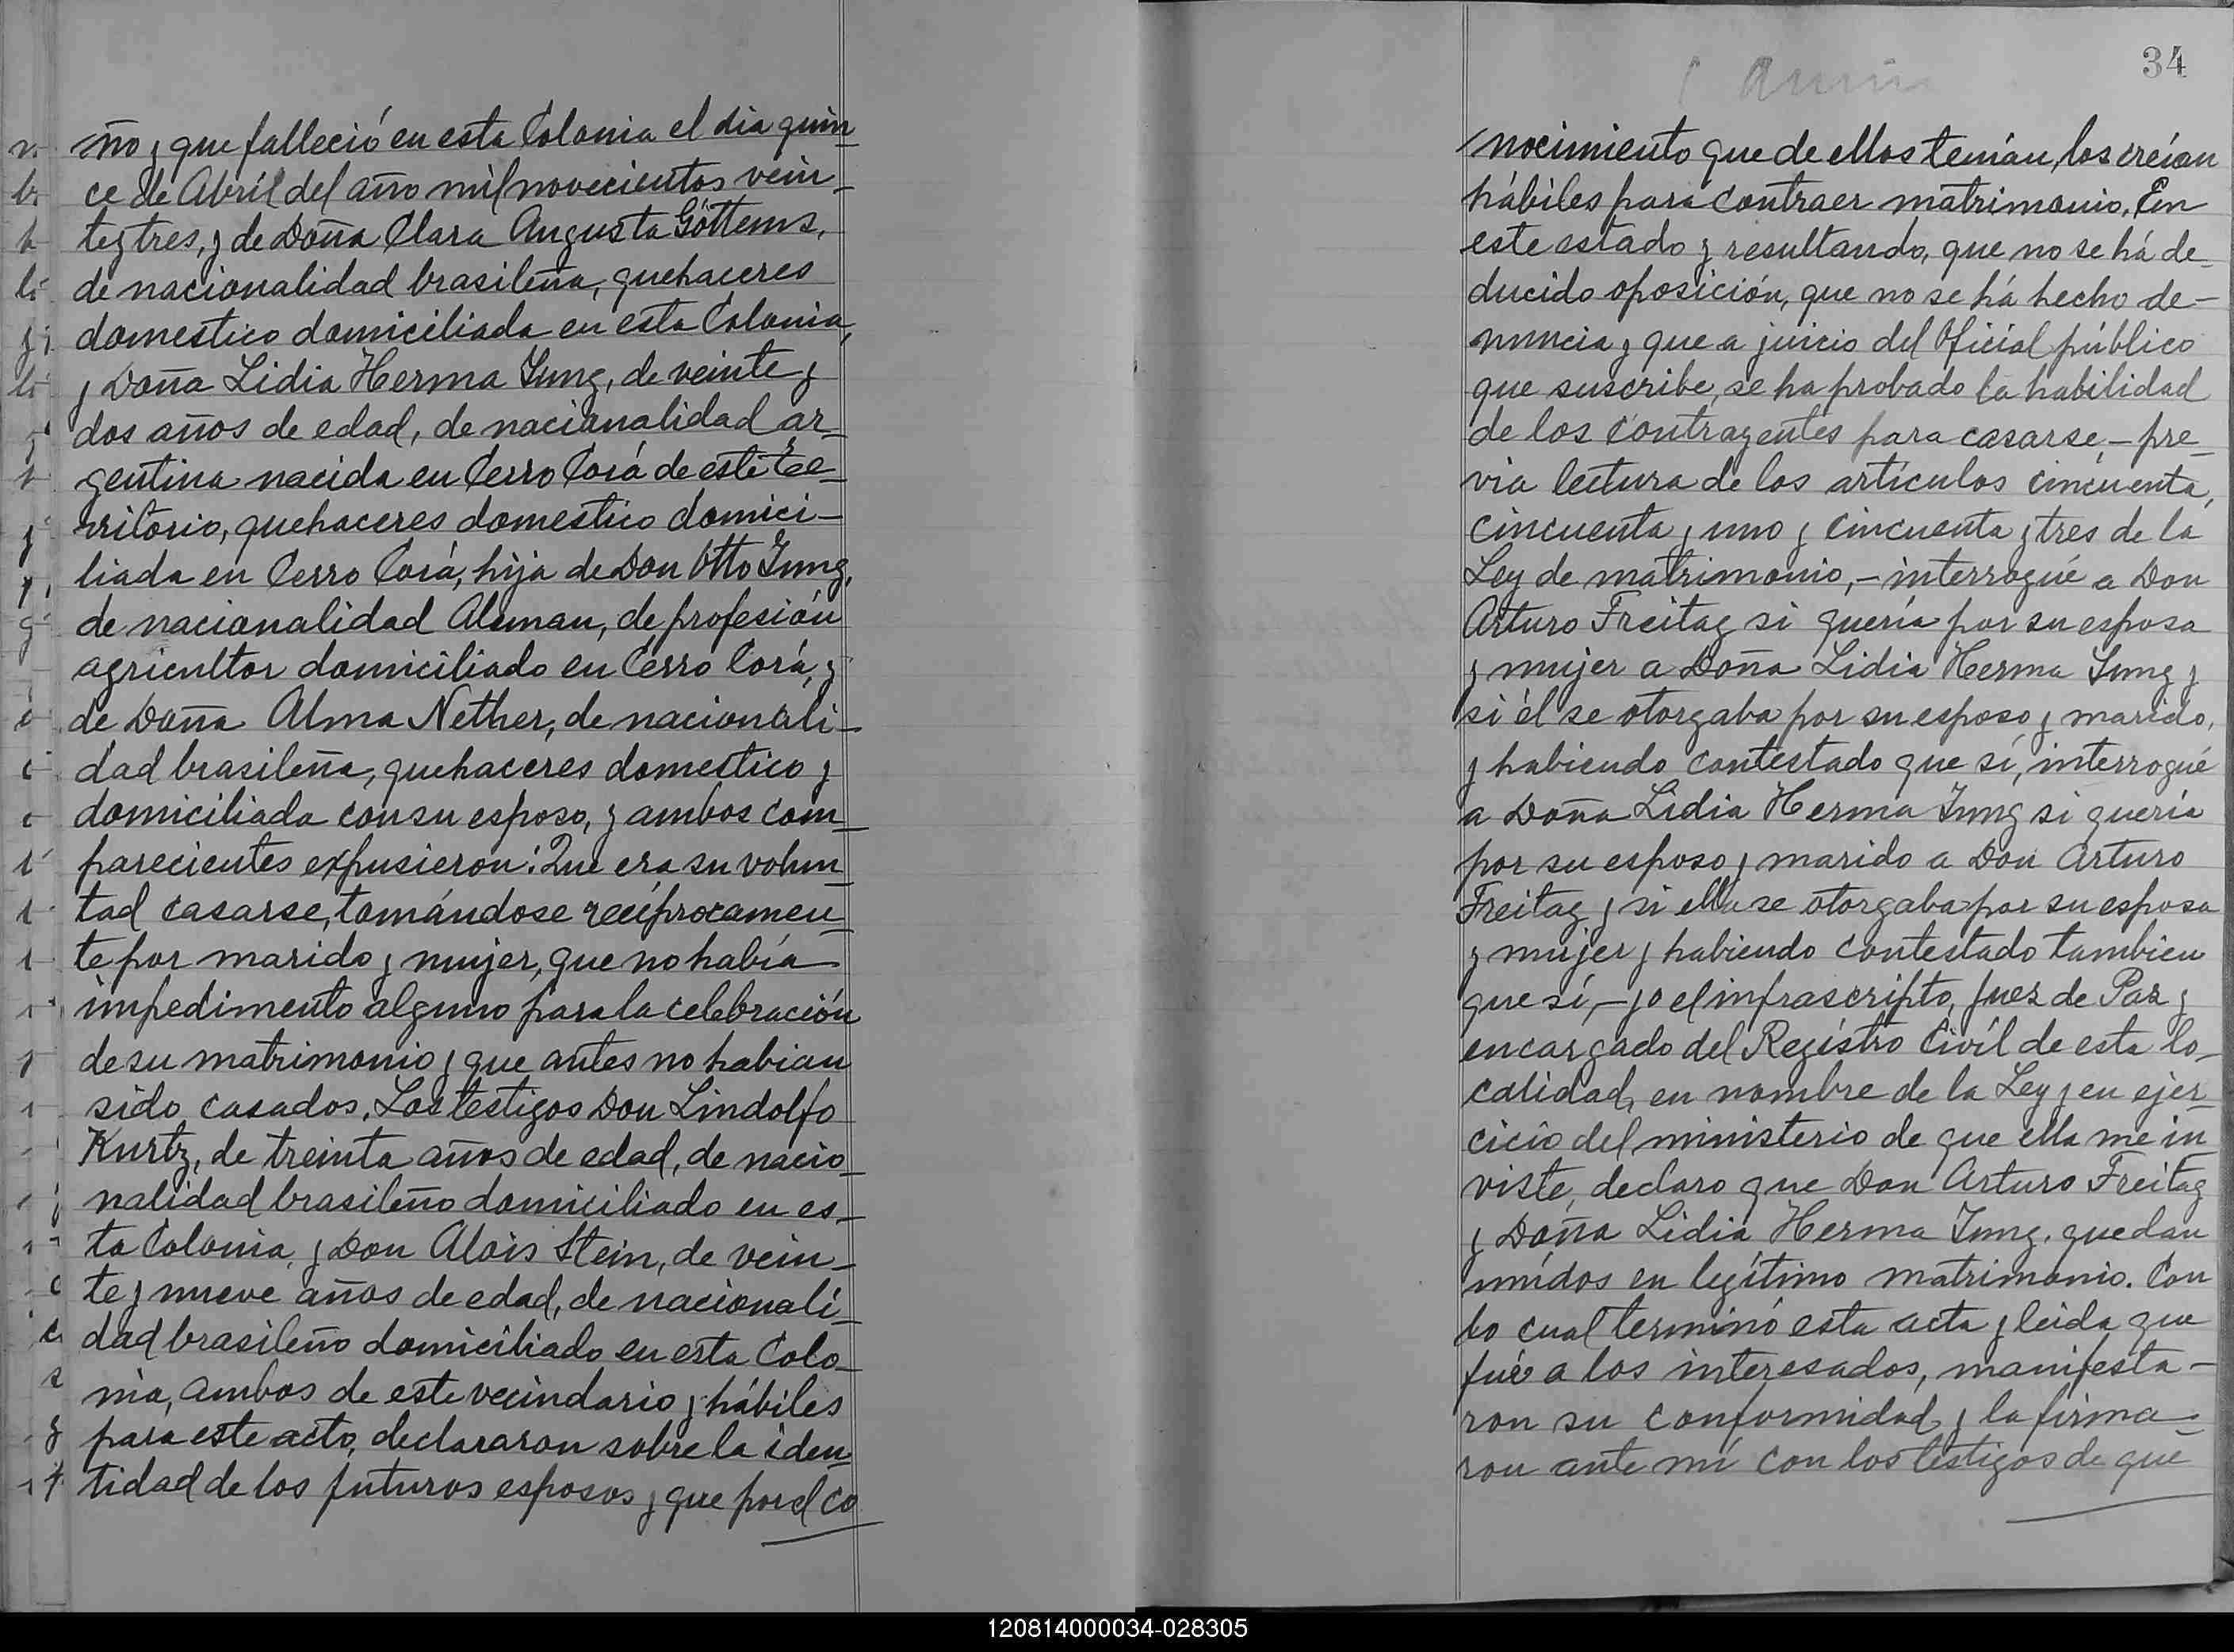 ño y que falleció en esta Colonia el dia quin-
ce de Abril del año mil novecientos vein-
te y tres, y de Doña Clara Augusta Göttems,
de nacionalidad brasileña, quehaceres
domestico domiciliada en esta Colonia,
y Doña Lidia Herma Jung, de veinte y
dos años de edad, de nacionalidad ar-
gentina nacida en Cerro Corá de este te-
rritorio, quehaceres domestico domici-
liada en Cerro Corá, hija de Don Otto Jung,
de nacionalidad Aleman, de profesión
agricultor domiciliado en Cerro Corá, y
de Doña Alma Nether, de nacionali-
dad brasileña, quehaceres domestico y
domiciliada con su esposo, y ambos com-
parecientes expusieron: Que era su volun-
tad casarse, tomándose recíprocamen-
te por marido y mujer, que no había
impedimento alguno para la celebración
de su matrimonio y que antes no habian
sido casados. Los testigos Don Lindolfo
Kurtz, de treinta años de edad, de nacio-
nalidad brasileño domiciliado en es-
ta Colonia, y Don Alois Stein, de vein-
te y nueve años de edad, de nacionali-
dad brasileño domiciliado en esta Colo-
nia, ambos de este vecindario y hábiles
para este acto, declararon sobre la iden-
tidad de los futuros esposos y que por el co
34
nocimiento que de ellos tenían, los creían
hábiles para contraer matrimonio. En
este estado y resultando, que no se há de-
ducido oposición, que no se há hecho de-
nuncia y que a juicio del Oficial público
que suscribe, se ha probado la habilidad
de los contrayentes para casarse, - pre-
via lectura de los artículos cincuenta,
cincuenta y uno y cincuenta y tres de la
Ley de matrimonio, - interrogué a Don
Arturo Freitag si quería por su esposa
y mujer a Doña Lidia Herma Jung y
si él se otorgaba por su esposo y marido,
y habiendo contestado que sí, interrogué
a Doña Lidia Herma Jung si quería
por su esposo y marido a Don Arturo
Freitag y si ella se otorgaba por su esposa
y mujer y habiendo contestado tambien
que sí, - yo el infrascripto, Juez de Paz y
encargado del Registro Civíl de esta lo-
calidad, en nombre de la Ley y en ejer-
cicio del ministerio de que ella me in-
viste, declaro que Don Arturo Freitag
y Doña Lidia Herma Jung, quedan
unidos en legítimo matrimonio. Con
lo cual terminó esta acta y leida que
fué a los interesados, manifesta-
ron su conformidad y la firma-
ron ante mí con los testigos de que
120814000034-028305